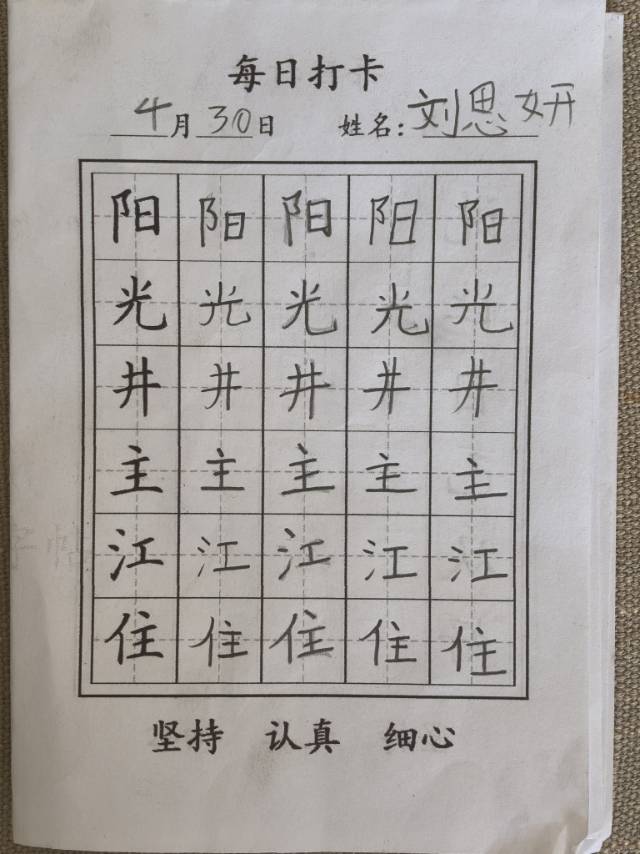 每日打卡
4月30日 姓名:刘思妍
阳阳阳阳阳
光光光光光
井井井井井
主主主主主
江江江江江
住住住住住
坚持 认真 细心